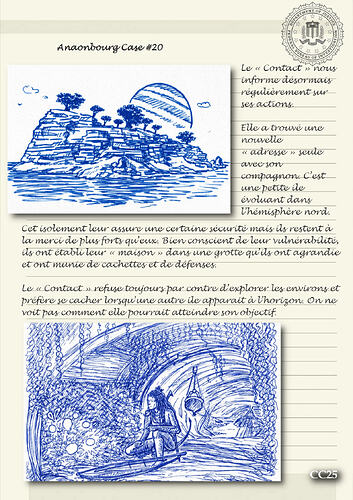 Anaonbourg Case #20
Le « Contact » nous
informe désormais
régulièrement sur
ses actions.
Elle a trouvé une
nouvelle
« adresse » seule
avec son
compagnon. C'est
une petite île
évoluant dans
l'hémisphère nord.
Cet isolement leur assure une certaine sécurité mais ils restent à
la merci de plus forts qu'eux. Bien conscient de leur vulnérabilité,
ils ont établi leur « maison » dans une grotte qu'ils ont agrandie
et ont munie de cachettes et de défenses.
Le « Contact » refuse toujours par contre d'explorer les environs et
préfère se cacher lorsqu'une autre île apparait à l'horizon. On ne
voit pas comment elle pourrait atteindre son objectif.
CC25